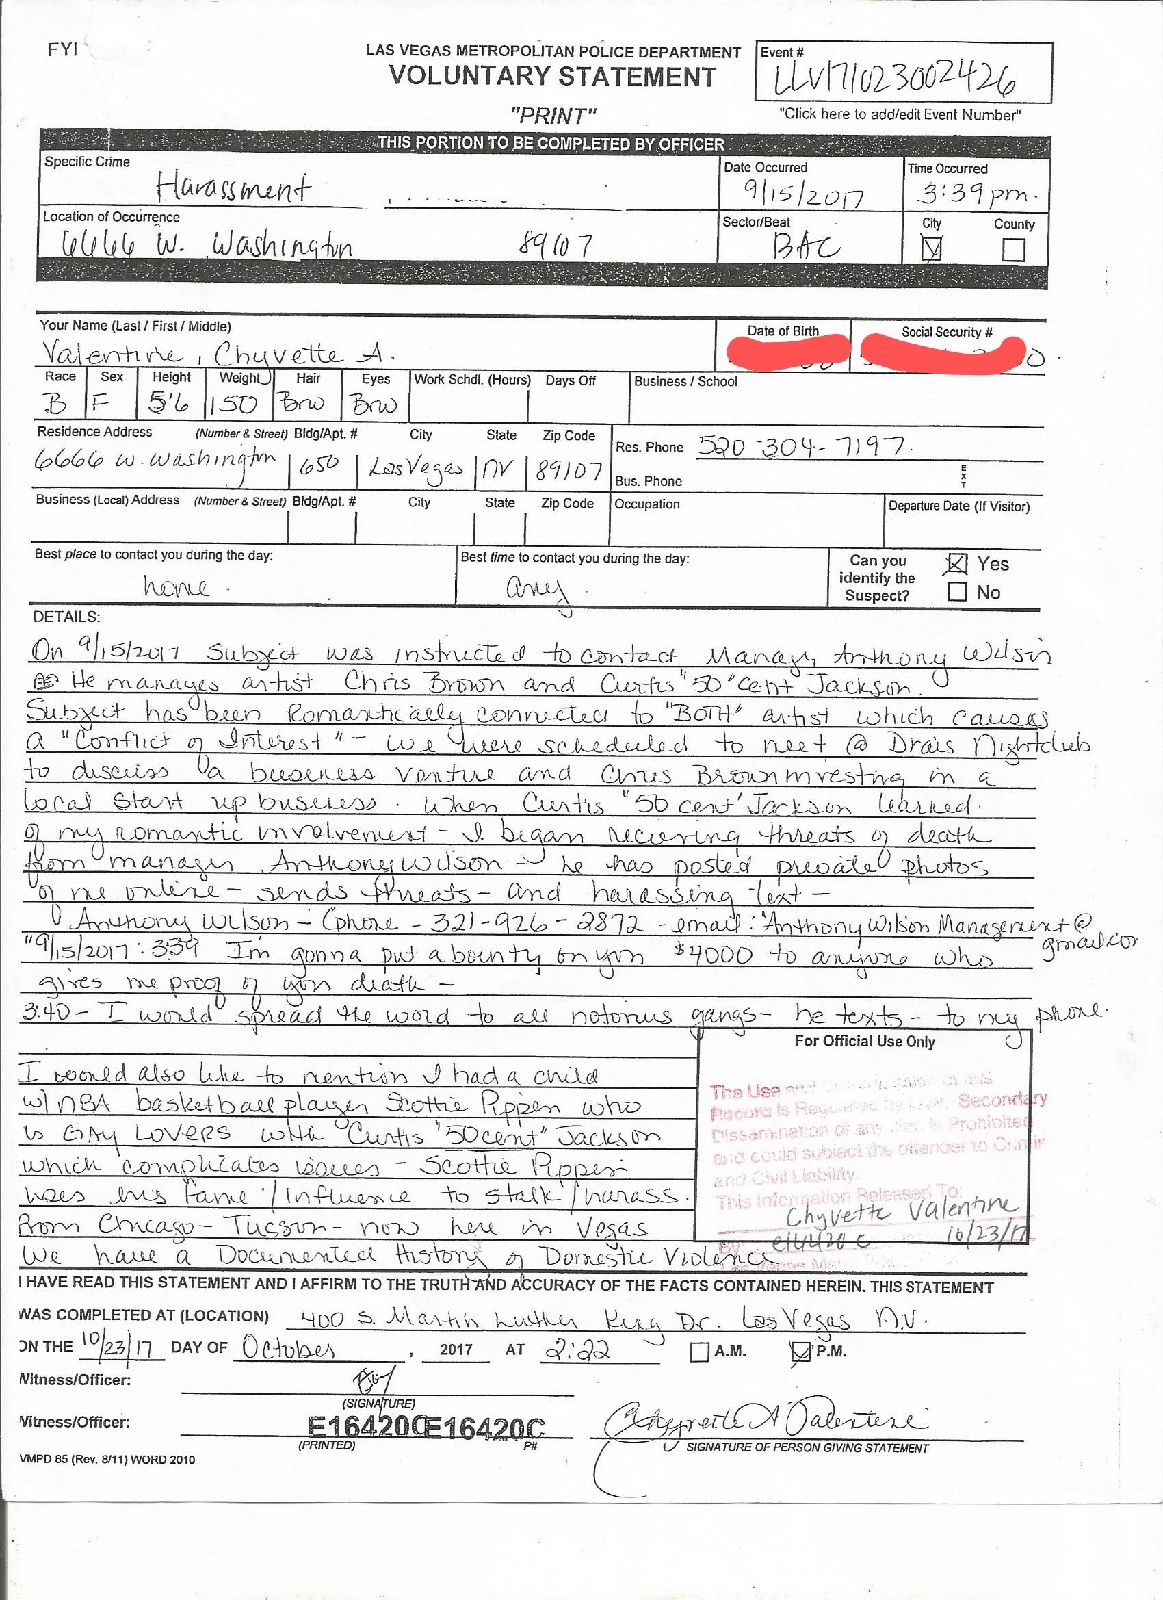 FYI
LAS VEGAS METROPOLITAN POLICE DEPARTMENT
VOLUNTARY STATEMENT
"PRINT"
Event #
LLV171023002426
"Click here to add/edit Event Number"
THIS PORTION TO BE COMPLETED BY OFFICER
Specific Crime
Harassment
Date Occurred
9/15/2017
Time Occurred
3:39pm.
Location of Occurrence
6666 W. Washington 89107
Sector/Beat
BAC
City County
Your Name (Last / First / Middle)
Valentine, Chyvette A.
Date of Birth
Social Security #
0
Race Sex Height Weight Hair Eyes Work Schdl. (Hours) Days Off Business / School
B F 5'6 150 Brw Brw
Residence Address (Number & Street) Bldg/Apt. # City State Zip Code
6666 W. Washington 650 Las Vegas NV 89107
Res. Phone 520-304-7197.
Bus. Phone EXT
Business (Local) Address (Number & Street) Bldg/Apt. # City State Zip Code Occupation Departure Date (If Visitor)
Best place to contact you during the day:
home.
Best time to contact you during the day:
any.
Can you identify the Suspect?
Yes
No
DETAILS:
On 9/15/2017 Subject was instructed to contact Manager Anthony Wilson
He manages artist Chris Brown and Curtis "50" cent Jackson.
Subject has been Romantically connected to "BOTH" artist which causes
a "Conflict of Interest" - we were scheduled to meet @ Drais Nightclub
to discuss a business venture and Chris Brown investing in a
local start up business. When Curtis "50 cent" Jackson learned.
of my romantic involvement - I began recieving threats of death
from manager Anthony Wilson - he has posted private photos
of me online - sends threats - and harassing text -
Anthony Wilson - (phone - 321-926-2872 - email: Anthony Wilson Management@
gmail.com
"9/15/2017: 339 I'm gonna put a bounty on you $4000 to anyone who
gives me proof of your death -
3:40 - I would spread the word to all notorius gangs - he texts - to my phone.
I would also like to mention I had a child
w/ NBA basketball player Scottie Pippen who
is GAY LOVERS with Curtis "50cent" Jackson
which complicates issues - Scottie Pippen
uses his fame / influence to stalk / harass.
from Chicago - Tucson - now here in Vegas
We have a Documented History of Domestic Violence
For Official Use Only
The Use and
Record is Secondary
Dissemination of is Prohibited
and could subject the offender to
and Civil Liability.
This Information Released To:
Chyvette Valentine
By: e16420c 10/23/17
I HAVE READ THIS STATEMENT AND I AFFIRM TO THE TRUTH AND ACCURACY OF THE FACTS CONTAINED HEREIN. THIS STATEMENT
WAS COMPLETED AT (LOCATION) 400 S. Martin Luther King Dr. Las Vegas N.V.
ON THE 10/23/17 DAY OF October, 2017 AT 2:22 A.M. P.M.
Witness/Officer:
(SIGNATURE)
Witness/Officer: E16420C E16420C
(PRINTED) P#
Chyvette A Valentine
SIGNATURE OF PERSON GIVING STATEMENT
VMPD 85 (Rev. 8/11) WORD 2010